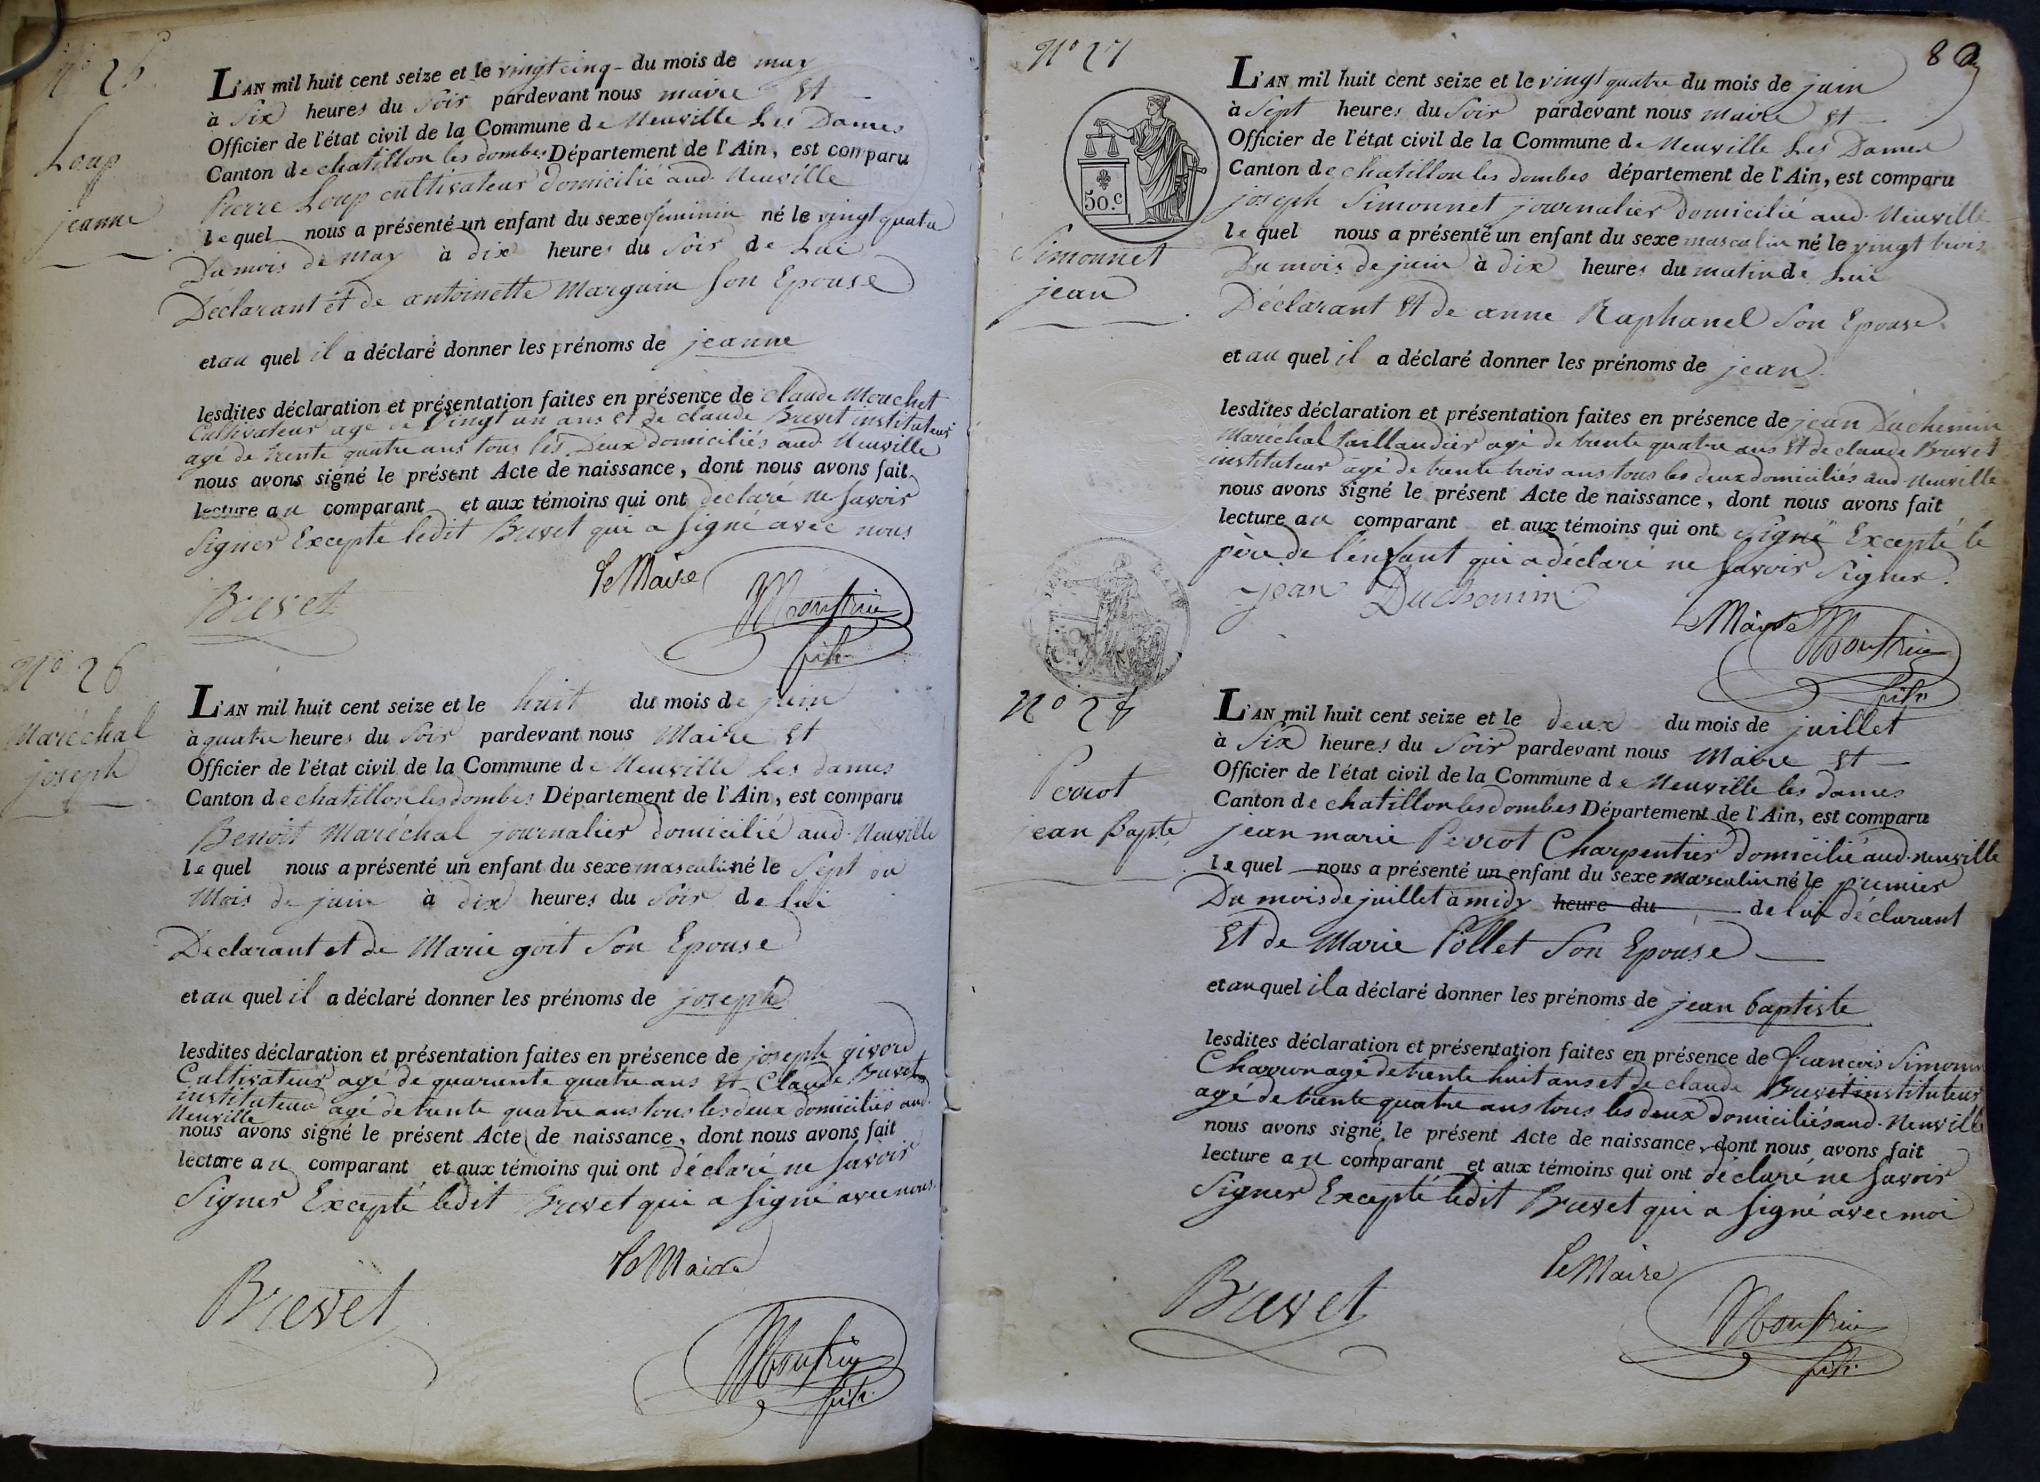 N° 25.
Loup
jeanne
L'AN mil huit cent seize et le vingt cinq du mois de may
à Six heures du Soir pardevant nous maire Et
Officier de l'état civil de la Commune de Neuville Les Dames
Canton de chatillon les dombes Département de l'Ain, est comparu
Pierre Loup cultivateur domicilié aud. Neuville
lequel nous a présenté un enfant du sexe feminin né le vingt quatre
Du mois de may à dix heures du Soir de Lui
Déclarant et de antoinette Marguin Son Epouse
et au quel il a déclaré donner les prénoms de jeanne
lesdites déclaration et présentation faites en présence de Claude Mouchet
Cultivateur agé de vingt un ans et de claude Brevet instituteur
agé de trente quatre ans tous les Deux domiciliés aud Neuville
nous avons signé le présent Acte de naissance, dont nous avons fait
lecture au comparant et aux témoins qui ont declaré ne Savoir
Signer Excepté ledit Brevet qui a Signé avec nous
Brevet
le Maire
fils
N° 26
Maréchal
joseph
L'AN mil huit cent seize et le huit du mois de juin
à quatre heures du Soir pardevant nous Maire Et
Officier de l'état civil de la Commune de Neuville Les dames
Canton de chatillon les dombes Département de l'Ain, est comparu
Benoit Maréchal journalier domicilié aud. Neuville
lequel nous a présenté un enfant du sexe masculin né le Sept du
Mois de juin à dix heures du Soir de Lui
Declarant et de Marie goit Son Epouse
et au quel il a déclaré donner les prénoms de joseph
lesdites déclaration et présentation faites en présence de joseph givord
Cultivateur agé de quarante quatre ans Et Claude Brevet
instituteur agé de trente quatre ans tous les deux domiciliés aud.
Neuville
nous avons signé le présent Acte de naissance, dont nous avons fait
lecture au comparant et aux témoins qui ont déclaré ne Savoir
Signer Excepté ledit Brevet qui a Signé avec nous.
Brevet
le Maire
fils
8
N° 27
50.c
Simonnet
jean
L'AN mil huit cent seize et le vingt quatre du mois de juin
à Sept heures du Soir pardevant nous maire Et
Officier de l'état civil de la Commune de Neuville Les Dames
Canton de chatillon les dombes département de l'Ain, est comparu
joseph Simonnet journalier domicilié aud. Neuville
lequel nous a présenté un enfant du sexe masculin né le vingt trois
Du mois de juin à dix heures du matin de Lui
Déclarant Et de anne Raphanel Son Epouse
et au quel il a déclaré donner les prénoms de jean
lesdites déclaration et présentation faites en présence de jean Duchemin
Maréchal taillandier agé de trente quatre ans Et de claude Brevet
instituteur agé de trente trois ans tous les deux domiciliés aud. Neuville
nous avons signé le présent Acte de naissance, dont nous avons fait
lecture au comparant et aux témoins qui ont Signé Excepté le
père de l'enfant qui a déclaré ne Savoir Signer.
jean Duchemin
le Maire
fils
N° 28
Perrot
jean Bapte
L'AN mil huit cent seize et le deux du mois de juillet
à Six heures du Soir pardevant nous Maire Et
Officier de l'état civil de la Commune de Neuville les dames
Canton de chatillon les dombes Département de l'Ain, est comparu
jean marie Perrot Charpentier domicilié aud. neuville
lequel nous a présenté un enfant du sexe masculin né le premier
Du mois de juillet à midy heure du de lui déclarant
Et de Marie Pollet Son Epouse
et au quel il a déclaré donner les prénoms de jean baptiste
lesdites déclaration et présentation faites en présence de francois Simonin
Charron agé de trente huit ans et de claude Brevet instituteur
agé de trente quatre ans tous les deux domiciliés aud. Neuville
nous avons signé le présent Acte de naissance, dont nous avons fait
lecture au comparant et aux témoins qui ont déclaré ne Savoir
Signer Excepté ledit Brevet qui a Signé avec moi
Brevet
le Maire
fils